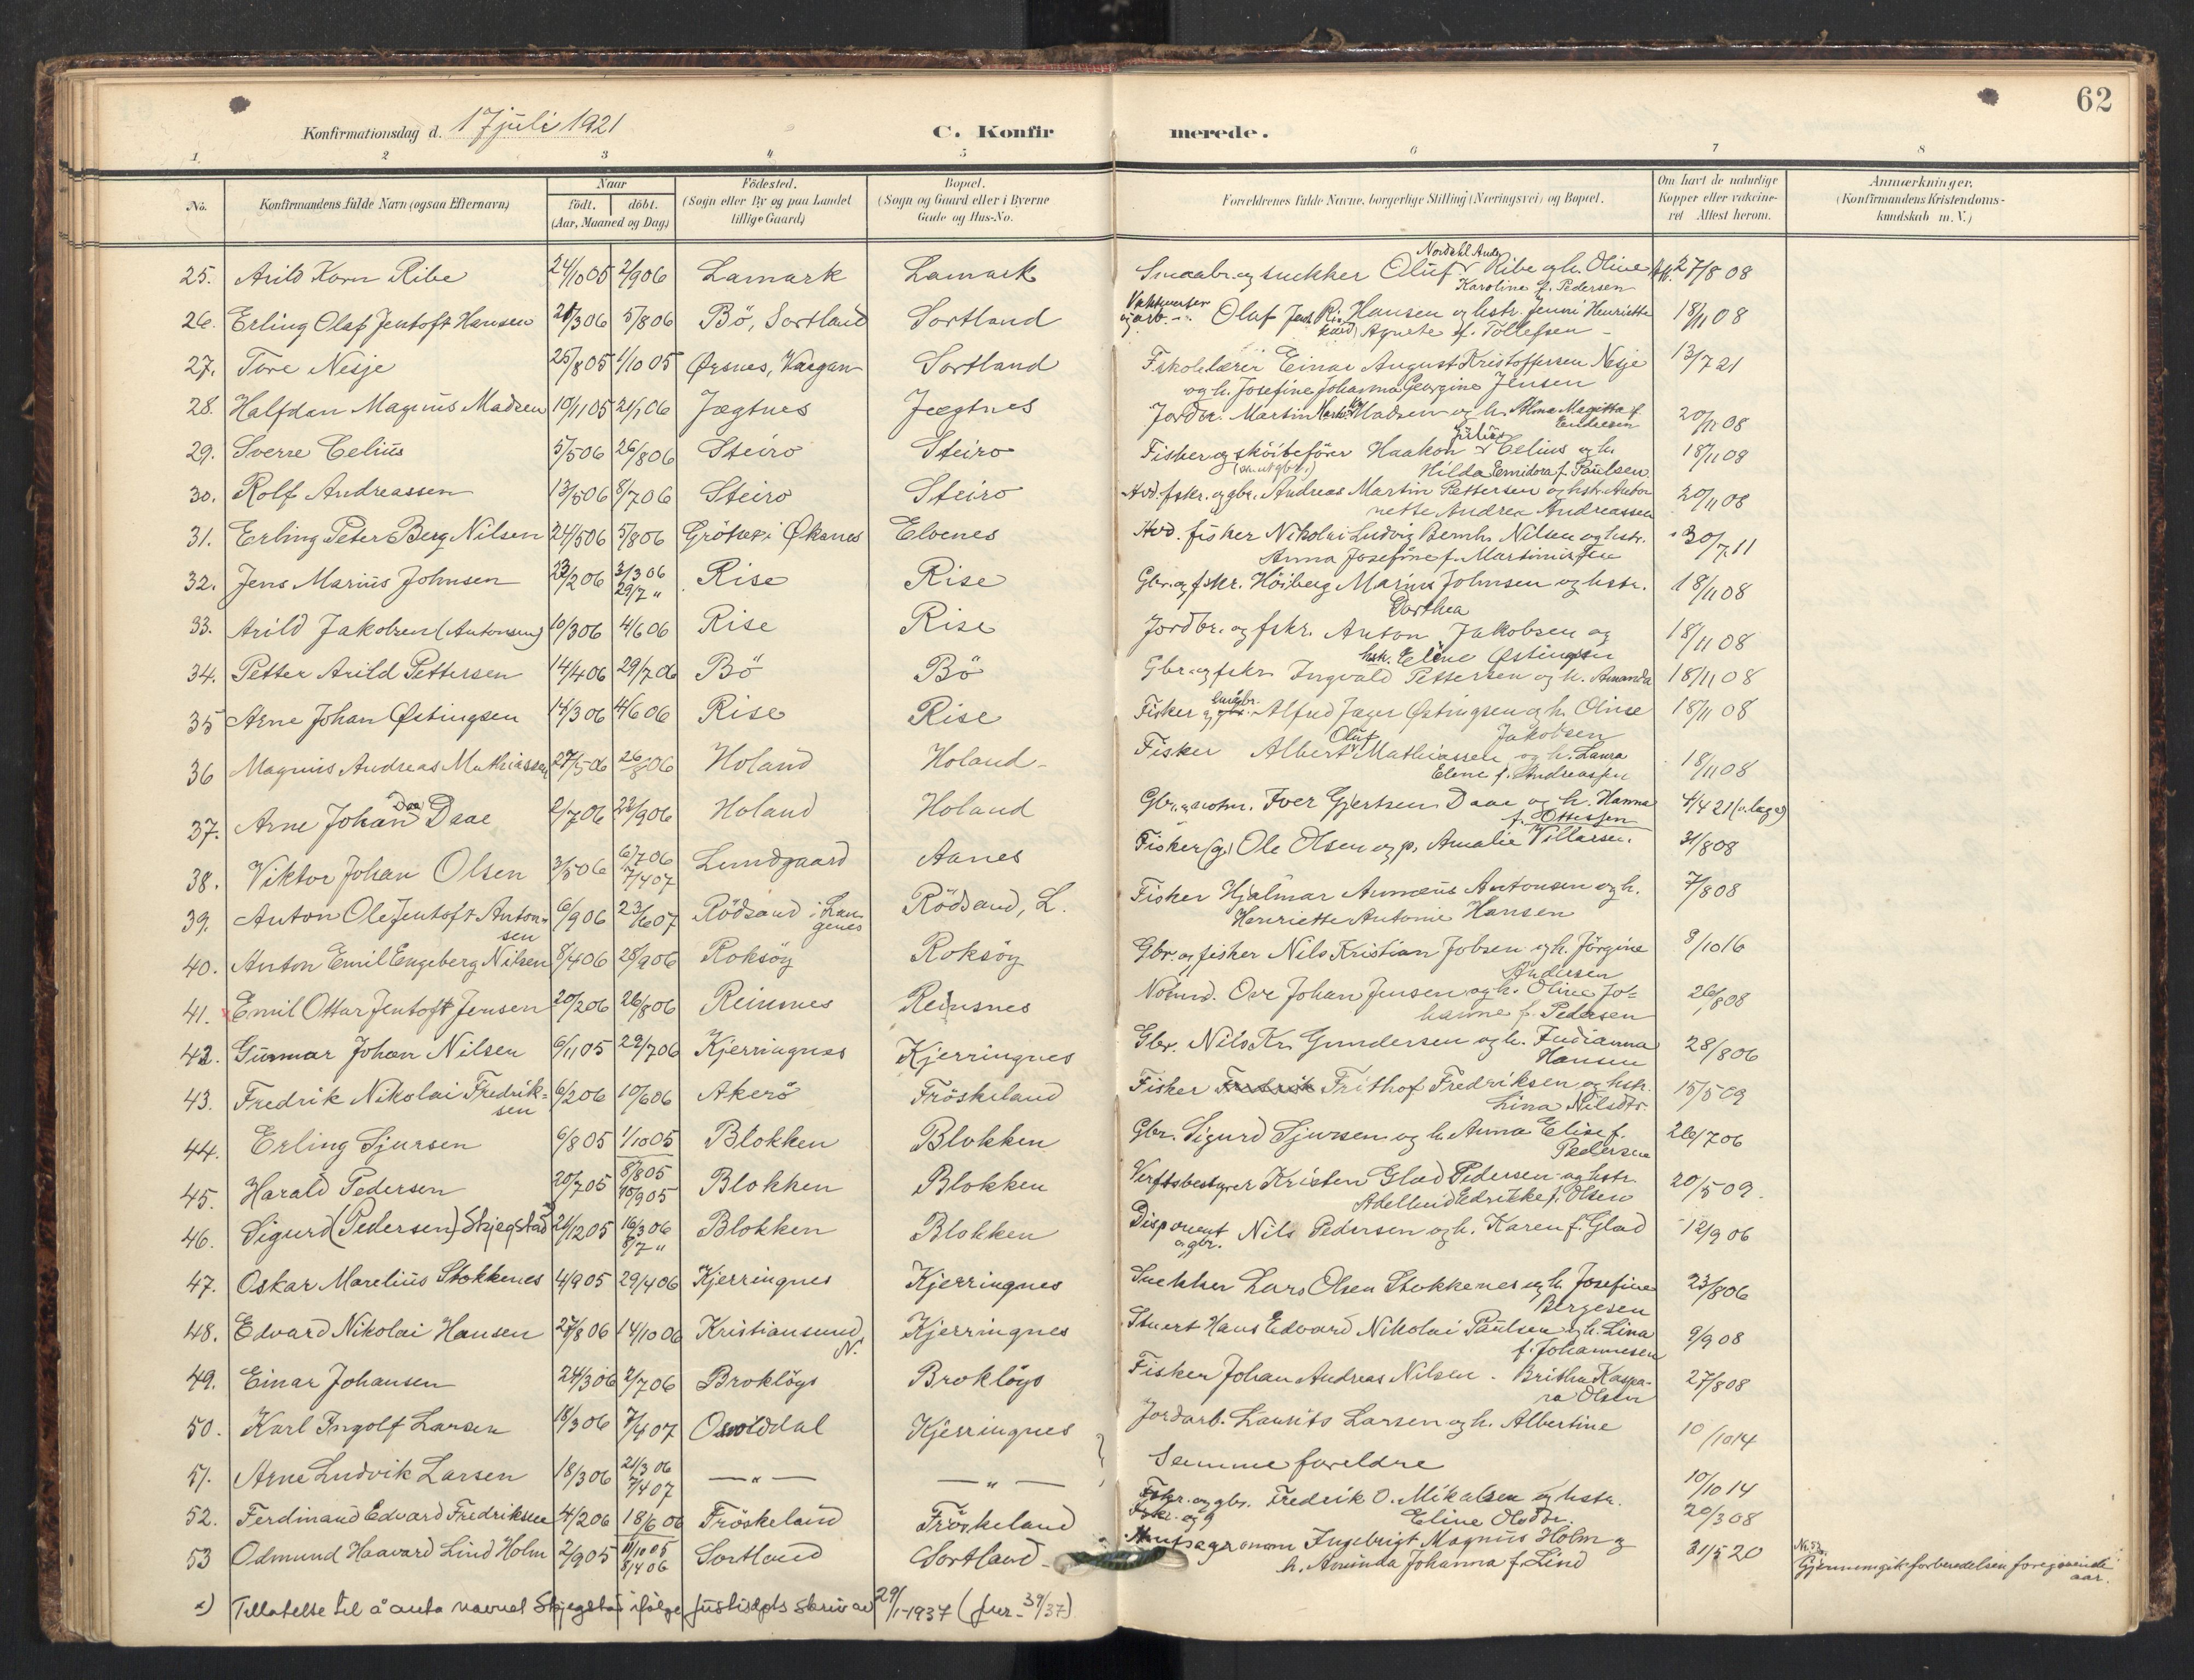 62
Konfirmationsdag d. 17 juli 1921
C. Konfirmerede.
1. 2 3 4 5 6 7 8
No. Konfirmandens fulde Navn (ogsaa Efternavn) Naar født. døbt. (Aar, Maaned og Dag) Fødested. (Sogn eller By og paa Landet tillige Gaard) Bopæl. (Sogn og Gaard eller i Byerne Gade og Hus-No. Forældrenes fulde Navne, borgerlige Stilling (Næringsvei) og Bopæl. Om havt de naturlige Kopper eller vakcineret Attest herom. Anmærkninger. (Konfirmandens Kristendomskundskab m. V.)
25. Arild Korn Ribe 24/10 05 2/9 06 Lamark Lamark Smaabr. og snekker Oluf Nordahl Ribe og h. Oline Karoline f. Pedersen 27/8 08
26. Erling Olaf Jentoft Hansen 21/3 06 5/8 06 Bö, Sortland Sortland og arb. Oluf Hansen og hstr. Jenni Henriette Agnete f. Tollefsen 18/11 08
27. Tore Nesje 25/8 05 1/10 05 Ørsnes, Vaagan Sortland F.skolelærer Einar August Kristoffersen Nesje og h. Josefine Johanna Georgine Jensen 13/7 21
28. Halfdan Magnus Madsen 10/11 05 21/1 06 Jægtnes Jægtnes Jordbr. Martin Madsen og h. Alma Magitta f. Endresen 20/11 08
29. Sverre Celius 5/5 06 26/8 06 Steiro Steiro Fisker og sköiteförer Haakon Julius Celius og h. Hilda Emidora f. Paulsen 18/11 08
30. Rolf Andreassen 13/5 06 8/7 06 Steiro Steiro Avd. fskr. og gbr. Andreas Martin Pettersen og hstr. Antonnette Andrea Andreassen 20/11 08
31. Erling Peter Berg Nilsen 24/5 06 5/8 06 Grötnes i Øksnes Elvenes Avd. fisker Nikolai Ludvig Bernh. Nilsen og hstr. Anna Josefine f. Martinussen 30/7 11
32. Jens Marius Johnsen 23/2 06 3/3 06 29/7 " Rise Rise Gbr. og fskr. Höiberg Marius Johnsen og hstr. Dorthea 18/11 08
33. Arild Jakobsen (Antonsen) 10/3 06 4/6 06 Rise Rise Jordbr. og fskr. Anton Jakobsen og hstr. Eline Østingsen 18/11 08
34. Petter Arild Pettersen 14/4 06 29/7 06 Bö Bö Gbr. og fskr. Ingvald Pettersen og h. Amanda 18/11 08
35 Arne Johan Østingsen 14/3 06 4/6 06 Rise Rise Fisker og Alfred Jager Østingsen og h. Oline Jakobsen 18/11 08
36 Magnus Andreas Mathiassen 27/5 06 26/8 06 Holand Holand Fisker Albert Oluf Mathiassen og h. Laura Elene f. Andreassen 18/11 08
37. Arne Johan Daae 2/7 06 22/9 06 Holand Holand Gbr. og notm. Iver Gjertsen Daae og h. Hanna f. Ottessen 4/4 21 (v. læge)
38. Viktor Johan Olsen 3/5 06 6/7 06 7/4 07 Lundgaard Aanes Fisker (g.) Ole Olsen og p. Amalie Villassen. 31/8 08
39. Anton Ole Jentoft Antonsen 6/9 06 23/6 07 Rödsand i Langenes Rödsand, L. Fisker Hjalmar Annæus Antonsen og h. Henriette Antonie Hansen 7/8 08
40. Anton Emil Engeberg Nilsen 8/4 06 28/9 06 Roksöy Roksöy Gbr. og fisker Nils Kristian Jobsen og h. Jörgine Andersen 9/10 16
41. Emil Ottar Jentoft Jensen 20/2 06 26/8 06 Reinsnes Reinsnes Notmd. Ove Johan Jensen og h. Oline Johanne f. Pedersen 26/8 08
42. Gunnar Johan Nilsen 6/11 05 29/7 06 Kjerringnes Kjerringnes Gbr. Nils Kr. Gundersen og h. Indianna Hansen 28/8 06
43. Fredrik Nikolai Fredriksen 6/2 06 10/6 06 Akerö Fröskeland Fisker Fredrik Frithof Fredriksen og hstr. Lina Nilsdtr. 15/5 09
44. Erling Sjursen 6/8 05 1/10 05 Blokken Blokken Gbr. Sigurd Sjursen og h. Anna Elise f. Pedersen 26/7 06
45. Harald Pedersen 20/7 05 8/8 05 10/9 05 Blokken Blokken Verftsbestyrer Kristen Glad Pedersen og hstr. Adellund Edrikke f. Olsen 20/5 09.
46. Sigurd (Pedersen) Skjegstad 21/12 05 16/3 06 8/7 " Blokken Blokken Disponent og gbr. Nils Pedersen og h. Karen f. Glad 12/9 06
47. Oskar Marelius Stokkenes 4/9 05 29/4 06 Kjerringnes Kjerringnes Snekker Lars Olsen Stokkenes og h. Josefine Bergesen 23/8 06
48. Edvard Nikolai Hansen 27/8 06 14/10 06 Kristiansund N. Kjerringnes Stuert Hans Edvard Nikolai Paulsen og h. Lina f. Johannesen 9/9 08
49. Einar Johansen 24/3 06 2/7 06 Broklöys Broklöys Fisker Johan Andreas Nilsen. Britha Kaspara Olsen 27/8 08
50. Karl Ingolf Larsen 18/3 06 7/4 07 Kjerringnes Jordarb. Laurits Larsen og h. Albertine 10/10 14
51. Arne Ludvik Larsen 18/3 06 21/3 06 7/4 07 — " — — " — Samme foreldre 10/10 14
52. Ferdinand Edvard Fredriksen 4/2 06 18/6 06 Fröskeland Fröskeland Fskr. og gbr. Fredrik O. Mikalsen og hstr. Eline Olsdtr. 20/3 08
53 Odmund Haavard Lind Holm 2/9 05 11/10 05 8/4 06 Sortland Sortland Ingebrigt Magnus Holm og h. Aminda Johanna f. Lind 31/5 20 No. 53. Gjennemgik forberedelsen foregaaende aar.
x) Tillatelse til å anta navnet Skjegstad ifølge justisdpts skriv av 29/1-1937 (jur. 39/37)